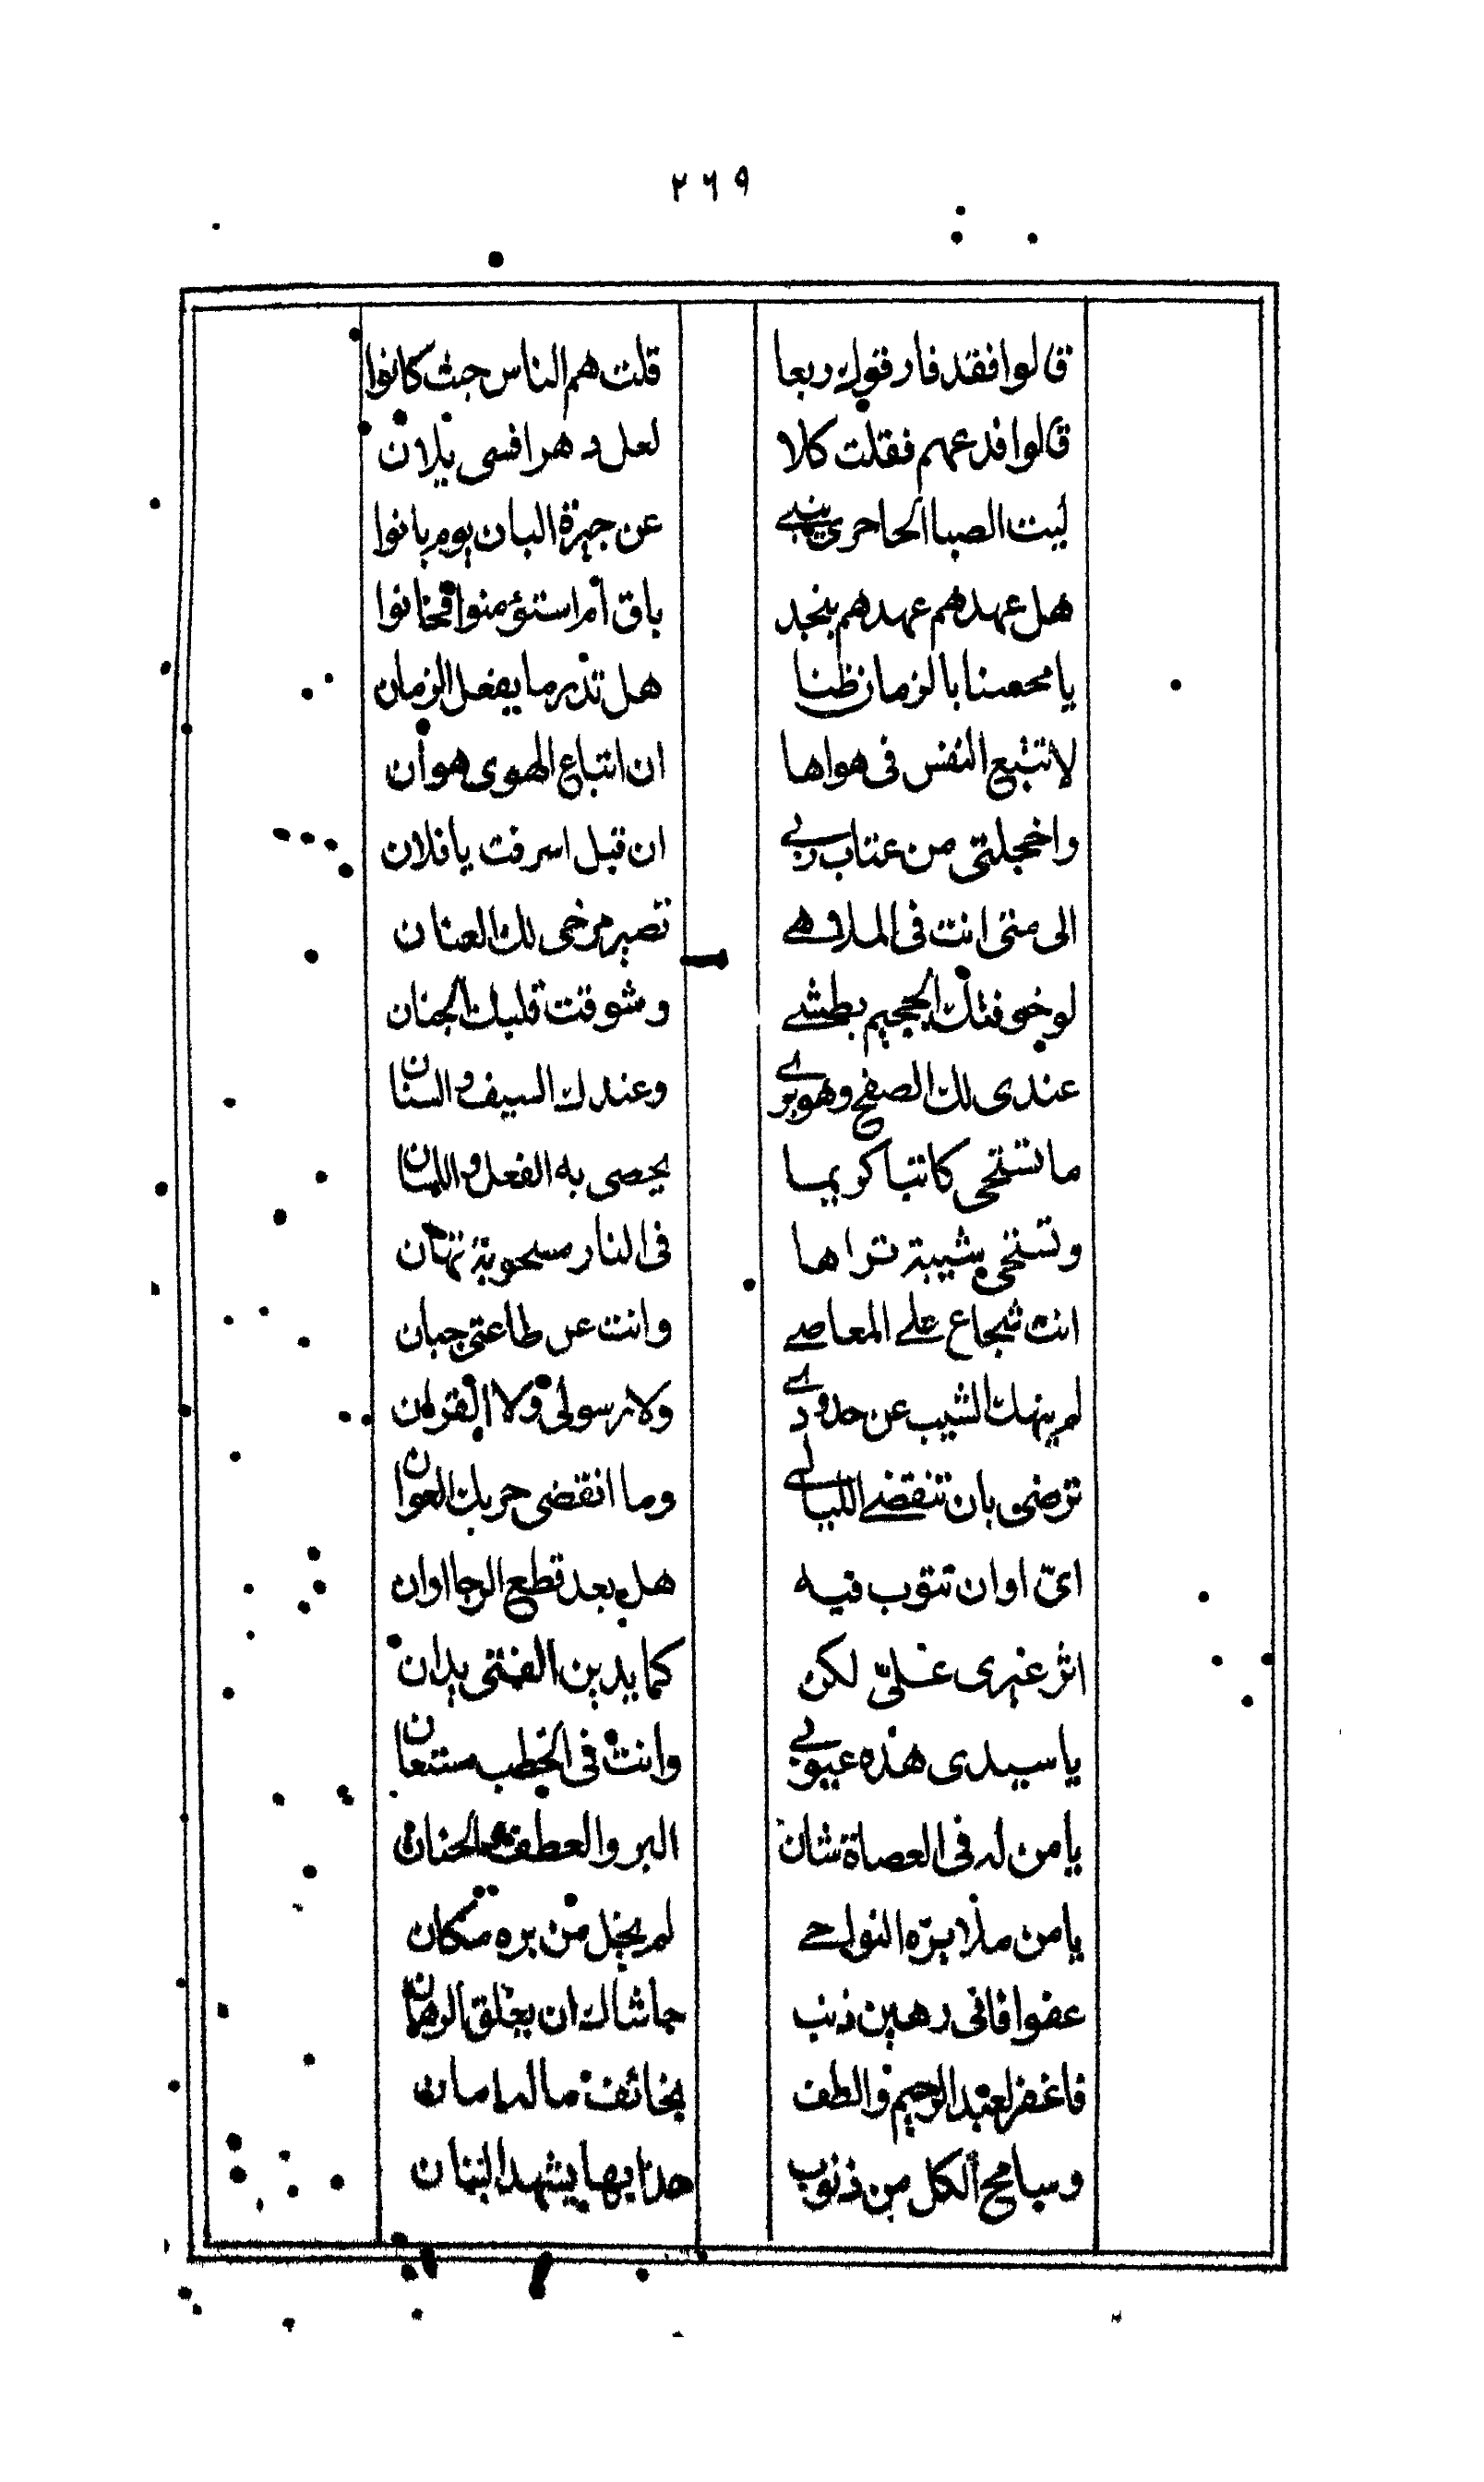 ٢٦٩
قالوا فقد فارقوك ربعا قلت هم الناس حيث كانوا
قالوا فدعهم فقلت كلا لعل دهرا قسى يلان
ليت الصبا الحاجرى ينبى عن جيرة البان يوم بانوا
هل عهدهم عهدهم بنجد باق أم استؤمنوا فخانوا
يا محصنا بالزمان ظنا هل تدر ما يفعل الزمان
لا تتبع النفس فى هواها ان اتباع الهوى هوان
واخجلتى من عتاب ربى ان قيل اسرفت يا فلان
الى متى انت فى الملاهى تصير مرخى لك العنان
لو خوفتك الجحيم بطشى وشوقت قلبك الجنان
عندى لك الصفح وهو برى وعندك السيف والسنان
ما تستحى كاتبا كريما يحصى به الفعل واللسان
وتستحى شيبة تراها فى النار مسحوبة تهان
انت شجاع على المعاصى وانت عن طاعتى جبان
لم ينهك الشيب عن حدودى ولا رسولى ولا القران
ترضى بان تنقضى الليالى وما انقضى حربك العوان
اىّ اوان تتوب فيه هل بعد قطع الرجا اوان
اثر غيرى علىّ لكن كما يدين الفتى يدان
يا سيدى هذه عيوبى وانت فى الخطب مستعان
يا من له فى العصاة شان البر والعطف والحنان
يا من ملا برّه النواحى لم يخل من بره مكان
عفوا فانى رهين ذنب حاشاك ان يغلق الرهان
فاغفر لعبد الرحيم والطف بخائف ما له امان
وسامح الكل من ذنوب يشهد البنان